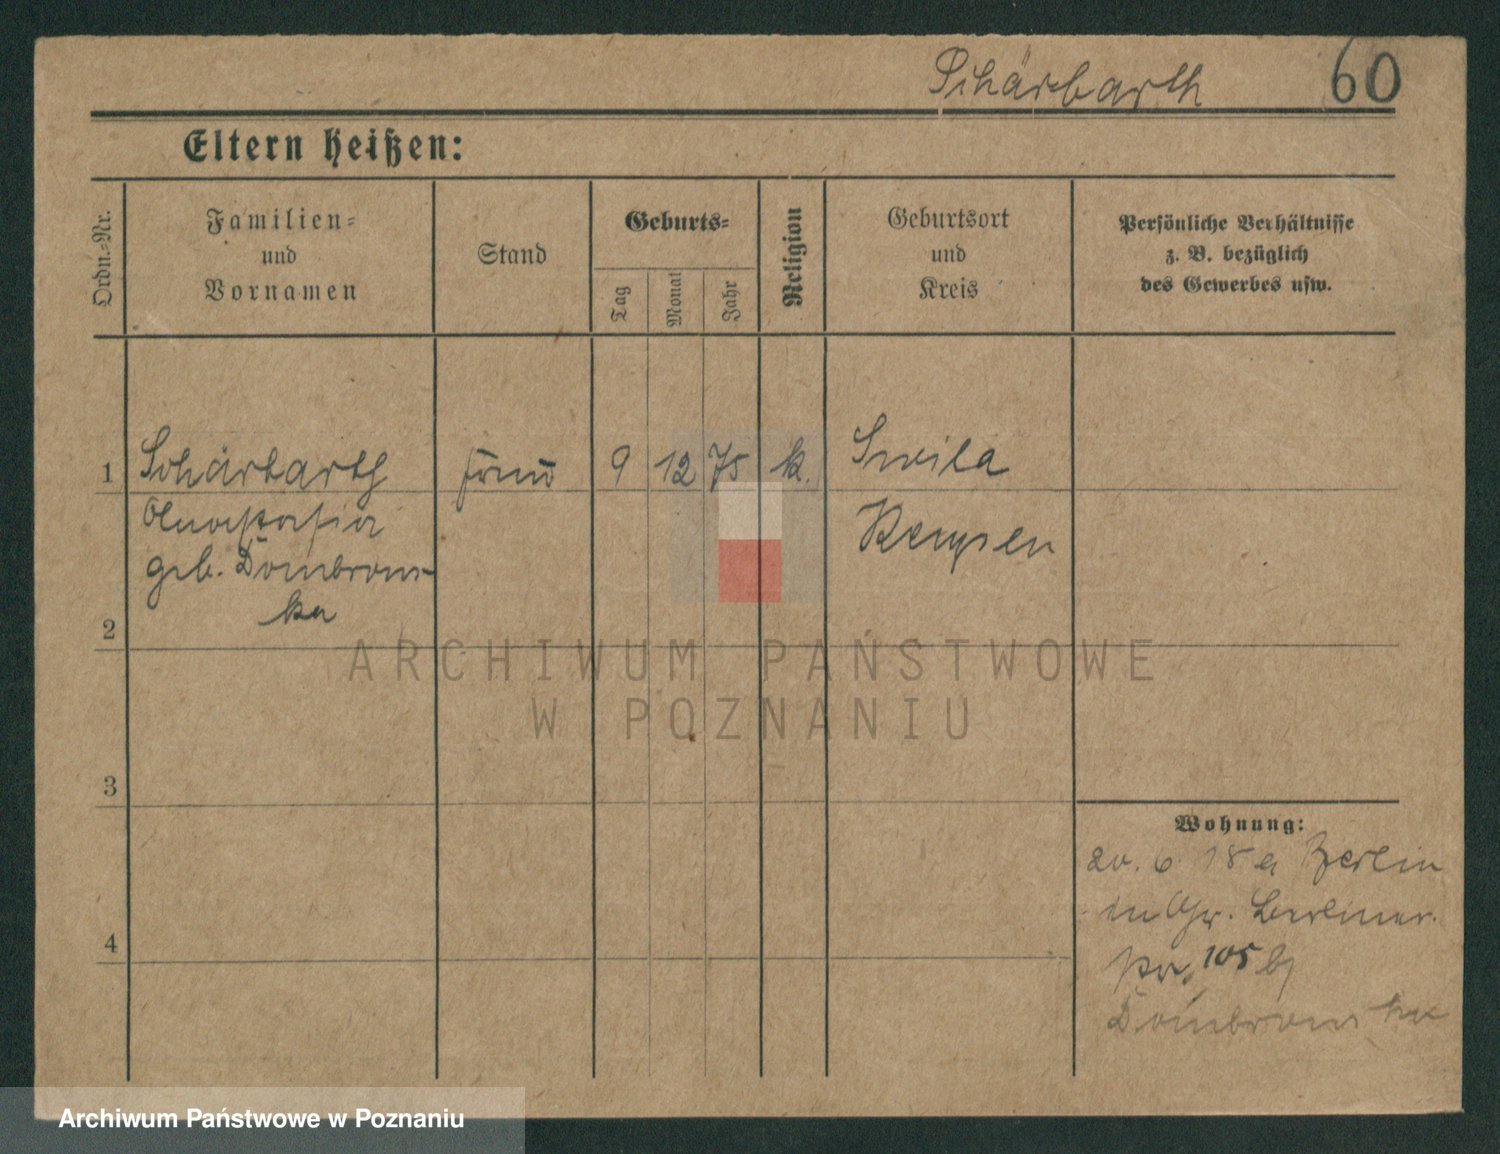 Schärbarth 60
Eltern heißen:
Ordn.=Nr.
Familien=
und
Vornamen
Stand
Geburts=
Tag
Monat
Jahr
Religion
Geburtsort
und
Kreis
Persönliche Verhältnisse
z. B. bezüglich
des Gewerbes usw.
1 Schärbarth 9 12 75 k. Swila
Anastasia Kempen
geb. Dombrows-
ka
2
3
4
Wohnung:
20. 6 18 a Berlin
in Gr. Berliner
105 b
Dombrowska
ARCHIWUM PAŃSTWOWE
W POZNANIU
Archiwum Państwowe w Poznaniu